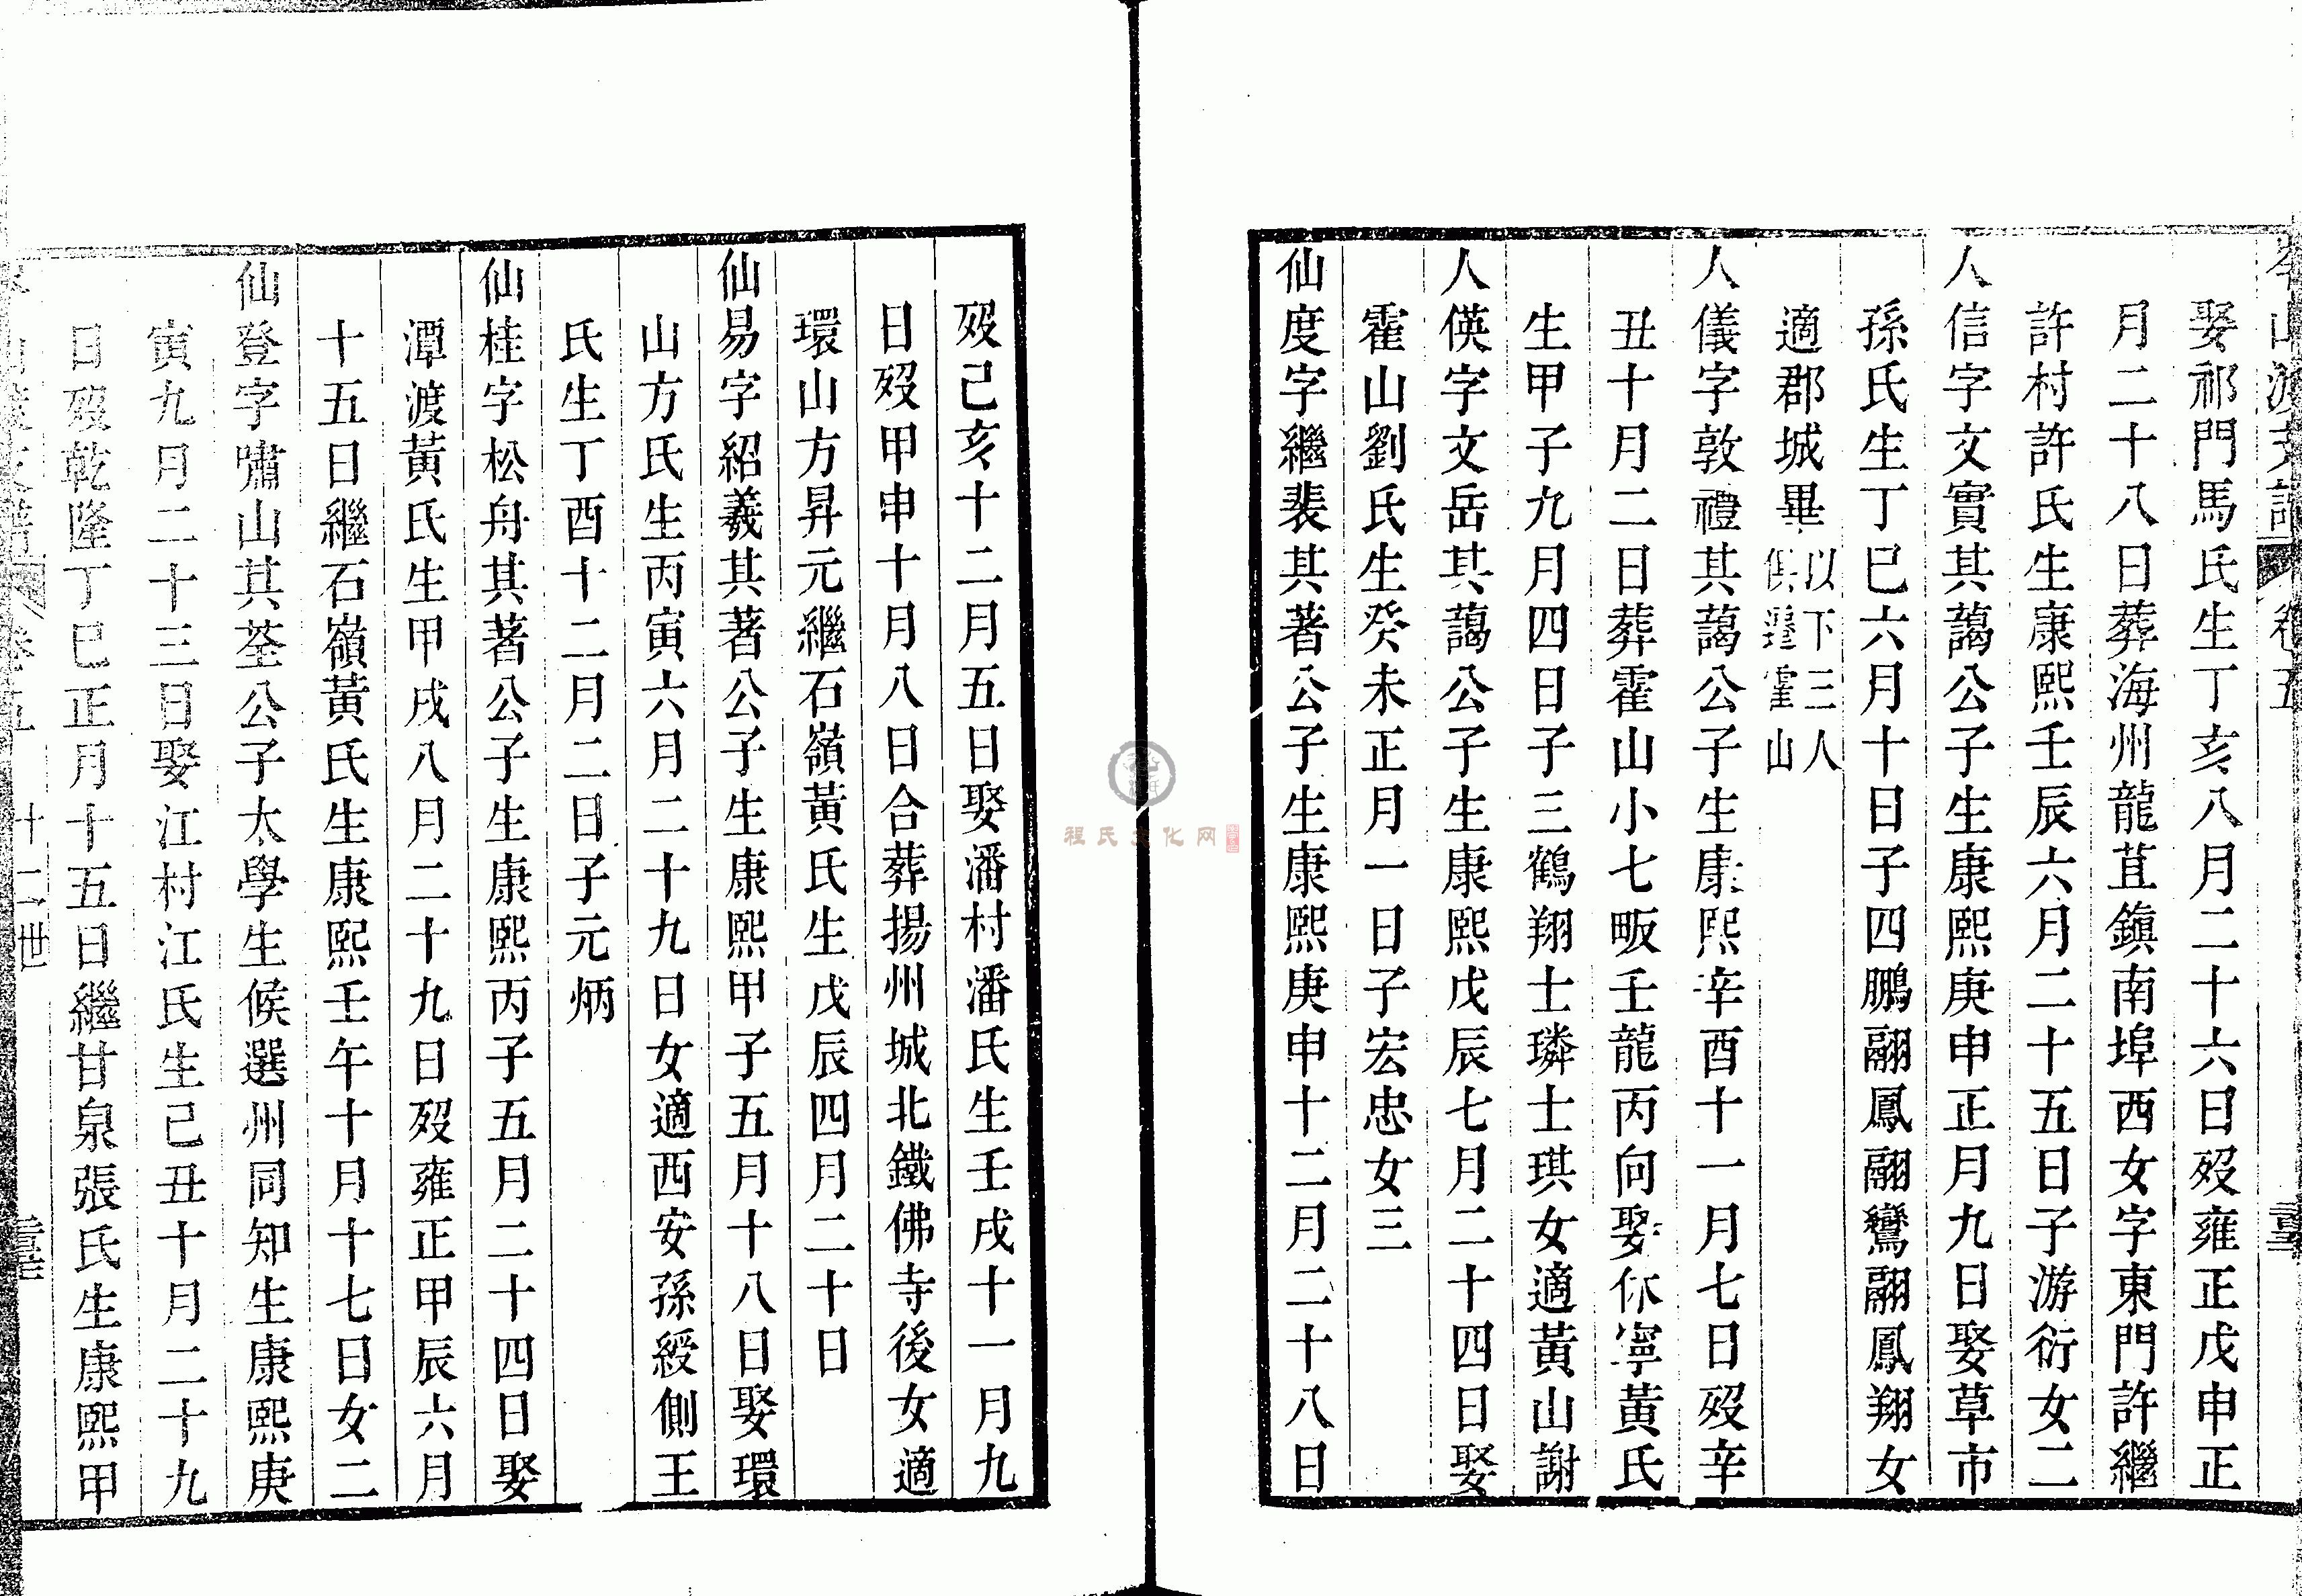 岑山渡支譜 卷五
娶祁門馬氏生丁亥八月二十六日歿雍正戊申正
月二十八日葬海州龍苴鎮南埠西女字東門許繼
許村許氏生康熙壬辰六月二十五日子游衍女二
人信字文實其藹公子生康熙庚申正月九日娶草市
孫氏生丁巳六月十日子四鵬翮鳳翮鸞翮鳳翔女
適郡城畢以下三人俱遷霍山
人儀字敦禮其藹公子生康熙辛酉十一月七日歿辛
丑十月二日葬霍山小七畈壬龍丙向娶休寧黃氏
生甲子九月四日子三鶴翔士璘士琪女適黃山謝
人偀字文岳其藹公子生康熙戊辰七月二十四日娶
霍山劉氏生癸未正月一日子宏忠女三
仙度字繼裴其著公子生康熙庚申十二月二十八日
歿己亥十二月五日娶潘村潘氏生壬戌十一月九
日歿甲申十月八日合葬揚州城北鐵佛寺後女適
環山方昇元繼石嶺黃氏生戊辰四月二十日
仙易字紹羲其著公子生康熙甲子五月十八日娶環
山方氏生丙寅六月二十九日女適西安孫綬側王
氏生丁酉十二月二日子元炳
仙桂字松舟其著公子生康熙丙子五月二十四日娶
潭渡黃氏生甲戌八月二十九日歿雍正甲辰六月
十五日繼石嶺黃氏生康熙壬午十月十七日女二
仙登字嘯山其荃公子太學生候選州同知生康熙庚
寅九月二十三日娶江村江氏生己丑十月二十九
日歿乾隆丁巳正月十五日繼甘泉張氏生康熙甲
岑山渡支譜 卷五 十二世
程氏文化网